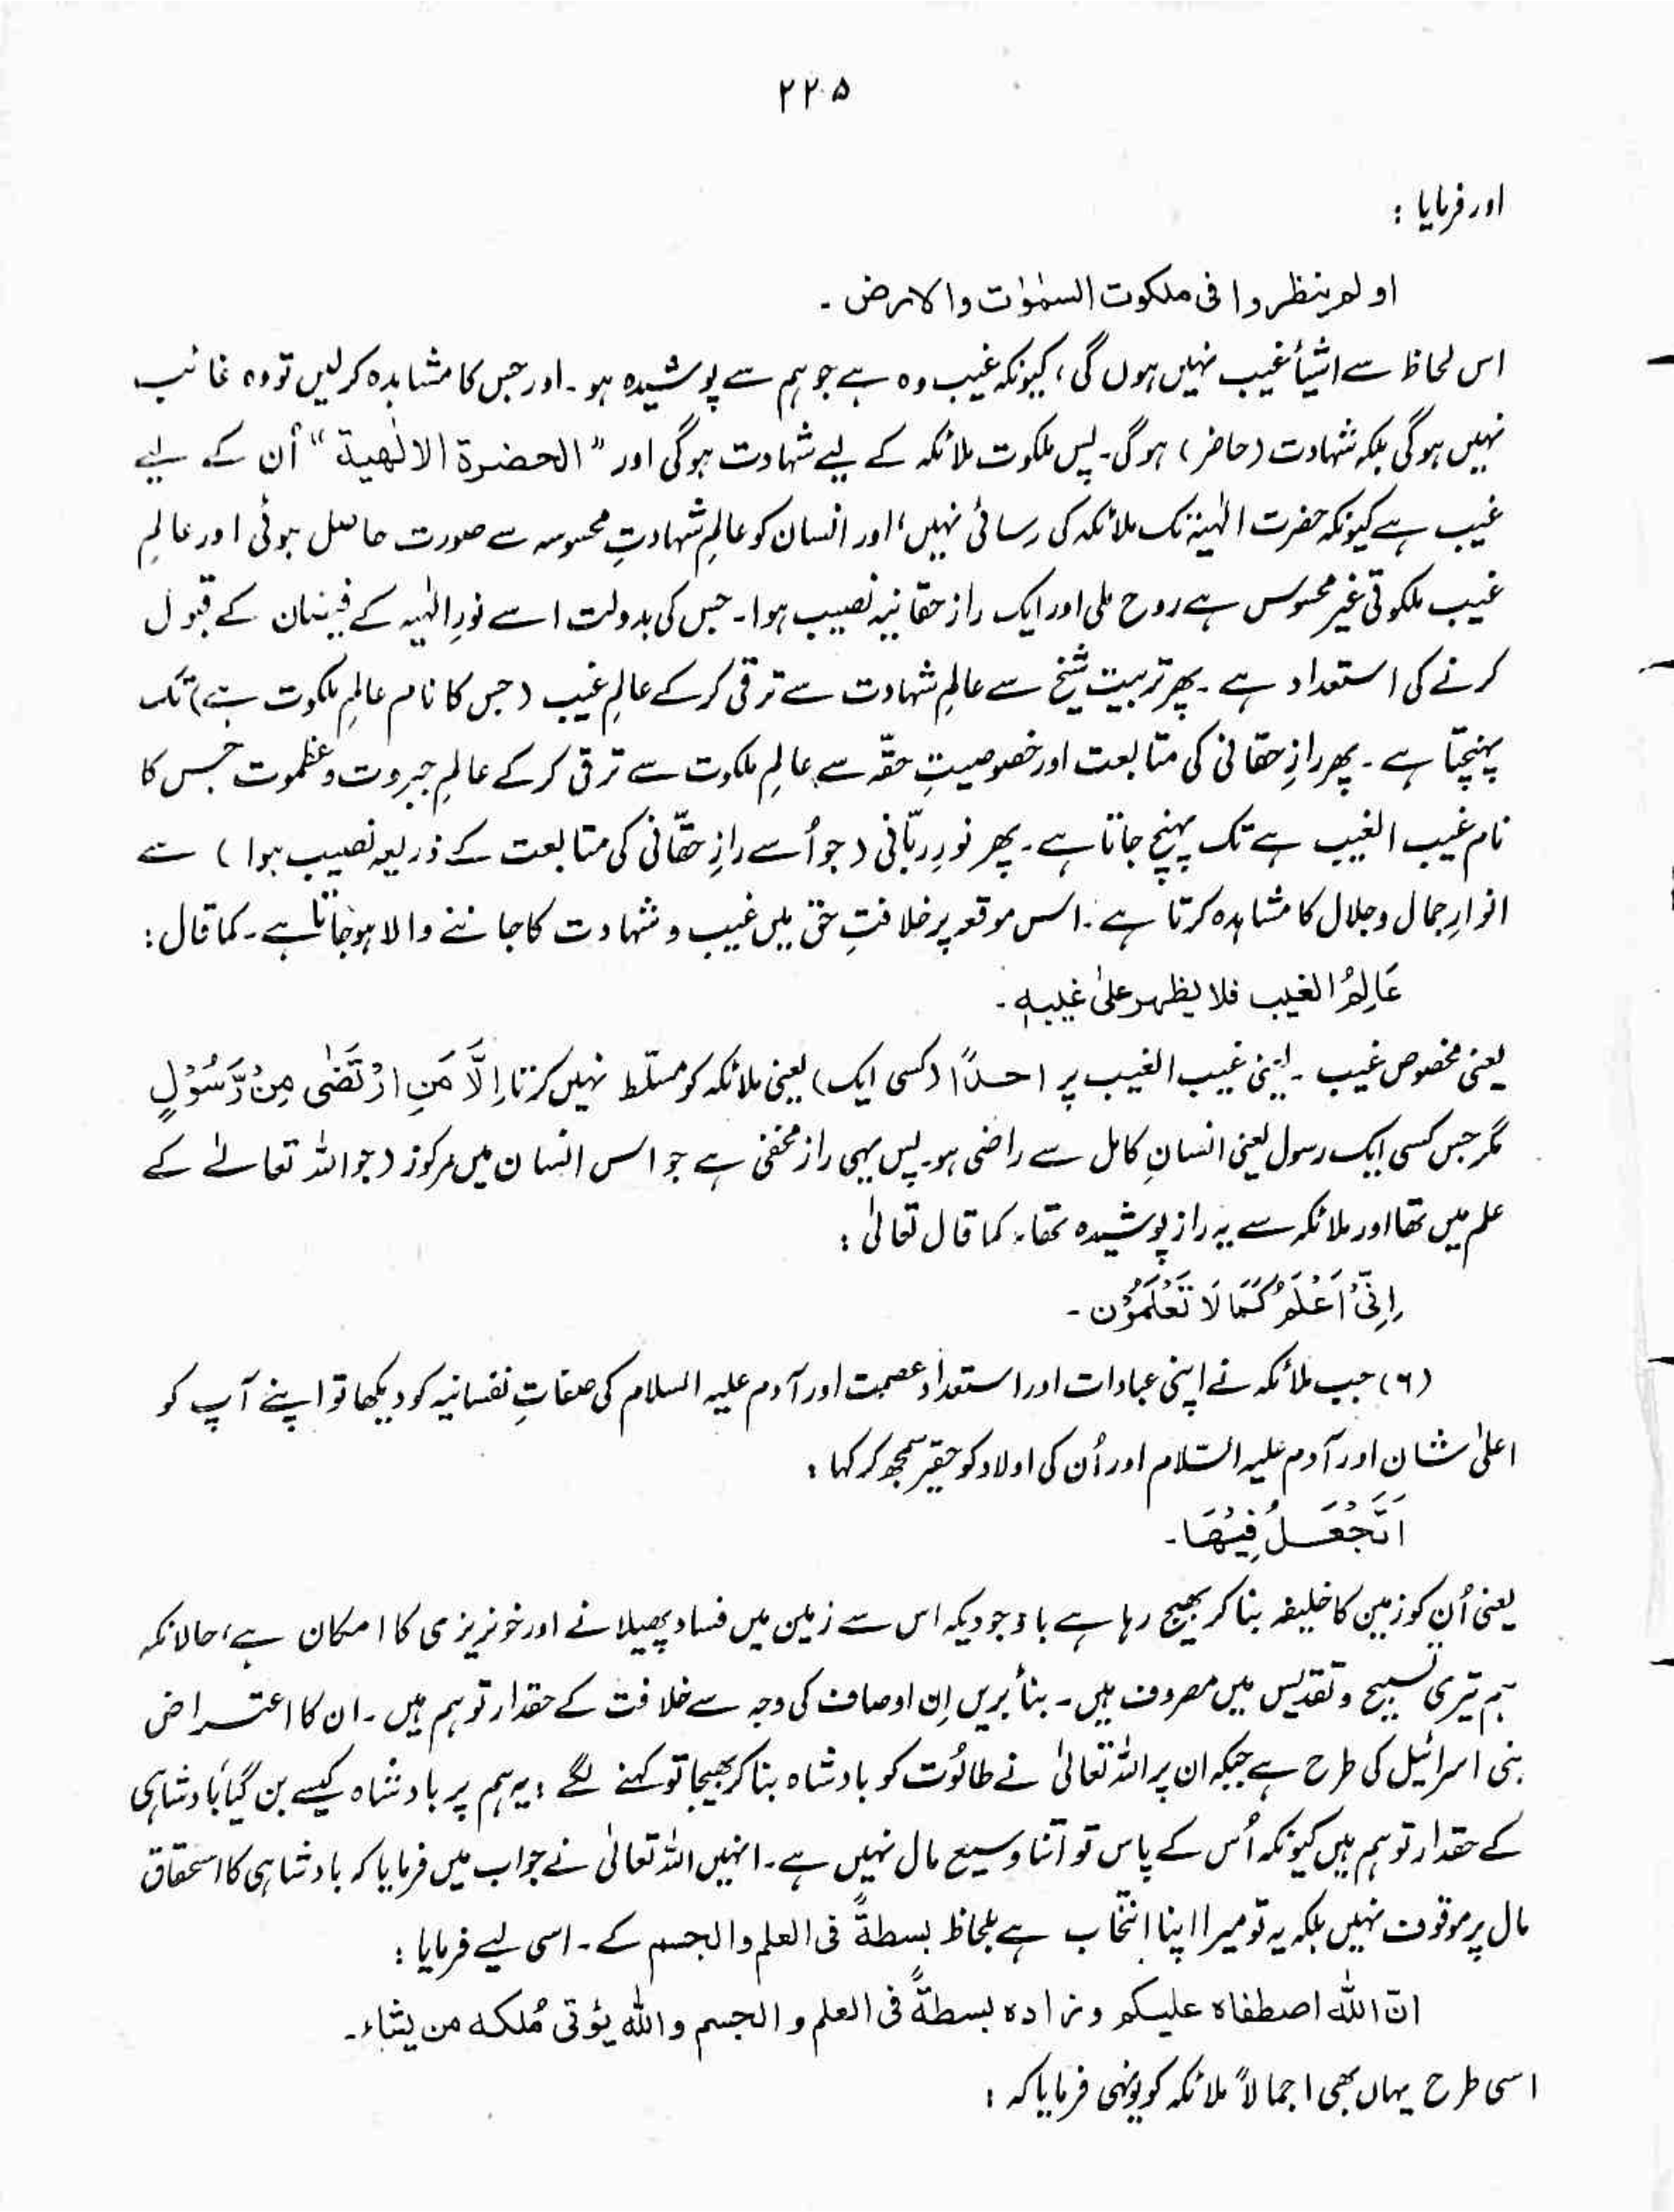 ۲۲۵
اور فرمایا :
او لم ینظروا فی ملکوت السمٰوٰت والارض ۔
اس لحاظ سے اشیأ غیب نہیں ہوں گی ، کیونکہ غیب وہ ہے جو ہم سے پوشیدہ ہو ۔ اور جس کا مشاہدہ کرلیں تو وہ غائب
نہیں ہوگی بلکہ شہادت (حاضر) ہوگی ۔ پس ملکوت ملائکہ کے لیے شہادت ہوگی اور ”الحضرة الالٰھیة“ اُن کے لیے
غیب ہے کیونکہ حضرت الٰہیۃ تک ملائکہ کی رسائی نہیں ، اور انسان کو عالمِ شہادتِ محسوسہ سے صورت حاصل ہوئی اور عالمِ
غیب ملکوتی غیر محسوس سے روح ملی اور ایک راز حقانیہ نصیب ہوا ۔ جس کی بدولت اسے نورِ الٰہیہ کے فیضان کے قبول
کرنے کی استعداد ہے ۔ پھر تربیت شیخ سے عالمِ شہادت سے ترقی کرکے عالمِ غیب (جس کا نام عالمِ ملکوت ہے) تک
پہنچتا ہے ۔ پھر رازِ حقانی کی متابعت اور خصوصیتِ حقّہ سے عالمِ ملکوت سے ترقی کرکے عالمِ جبروت و عظموت جس کا
نام غیب الغیب ہے تک پہنچ جاتا ہے ۔ پھر نورِ ربّانی (جو اُسے رازِ حقّانی کی متابعت کے ذریعہ نصیب ہوا) سے
انوارِ جمال و جلال کا مشاہدہ کرتا ہے ۔ اس موقعہ پر خلافتِ حق میں غیب و شہادت کا جاننے والا ہوجاتا ہے ۔ کما قال :
عَالِمُ الغیب فلا یظہر علیٰ غیبہٖ ۔
یعنی مخصوص غیب ۔ یعنی غیب الغیب پر احداً (کسی ایک) یعنی ملائکہ کو مسلّط نہیں کرتا اِلَّا مَنِ ارْتَضٰی مِنْ رَّسُوْلٍ
مگر جس کسی ایک رسول یعنی انسانِ کامل سے راضی ہو ۔ پس یہی راز مخفی ہے جو اس انسان میں مرکوز (جو اللہ تعالےٰ کے
علم میں تھا اور ملائکہ سے یہ راز پوشیدہ تھا ۔ کما قال تعالیٰ :
اِنِّیْٓ اَعْلَمُ مَا لَا تَعْلَمُوْن ۔
(۶) جب ملائکہ نے اپنی عبادات اور استعداد عصمت اور آدم علیہ السلام کی صفاتِ نفسانیہ کو دیکھا تو اپنے آپ کو
اعلیٰ شان اور آدم علیہ السّلام اور اُن کی اولاد کو حقیر سمجھ کر کہا :
اَتَجْعَلُ فِیْھَا ۔
یعنی اُن کو زمین کا خلیفہ بنا کر بھیج رہا ہے باوجودیکہ اس سے زمین میں فساد پھیلانے اور خونریزی کا امکان ہے ، حالانکہ
ہم تیری تسبیح و تقدیس میں مصروف ہیں ۔ بنأ بریں اِن اوصاف کی وجہ سے خلافت کے حقدار تو ہم ہیں ۔ ان کا اعتراض
بنی اسرائیل کی طرح ہے جبکہ ان پر اللہ تعالیٰ نے طالُوت کو بادشاہ بنا کر بھیجا تو کہنے لگے : یہ ہم پر بادشاہ کیسے بن گیا بادشاہی
کے حقدار تو ہم ہیں کیونکہ اُس کے پاس تو اتنا وسیع مال نہیں ہے ۔ انہیں اللہ تعالیٰ نے جواب میں فرمایا کہ بادشاہی کا استحقاق
مال پر موقوف نہیں بلکہ یہ تو میرا اپنا انتخاب ہے بلحاظ بسطةً فی العلم والجسم کے ۔ اسی لیے فرمایا :
انّ اللہ اصطفاہ علیکم وزادہ بسطةً فی العلم والجسم واللہ یؤتی مُلکہ من یشاء ۔
اسی طرح یہاں بھی اجمالاً ملائکہ کو یونہی فرمایا کہ :